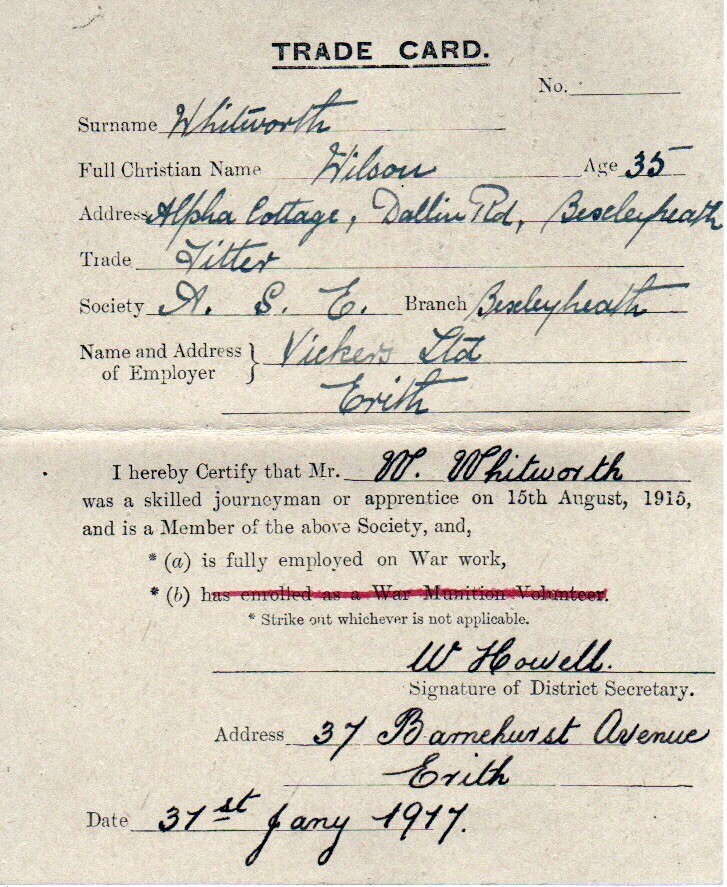 TRADE CARD.
No.
Surname Whitworth
Full Christian Name Wilson Age 35
Address Alpha Cottage, Dallin Rd, Bexleyheath
Trade Fitter
Society A. S. E. Branch Bexleyheath
Name and Address of Employer } Vickers Ltd
Erith
I hereby Certify that Mr. W. Whitworth
was a skilled journeyman or apprentice on 15th August, 1915,
and is a Member of the above Society, and,
* (a) is fully employed on War work,
* (b) has enrolled as a War Munition Volunteer.
* Strike out whichever is not applicable.
W Howell.
Signature of District Secretary.
Address 37 Barnehurst Avenue
Erith
Date 31st Jany 1917.